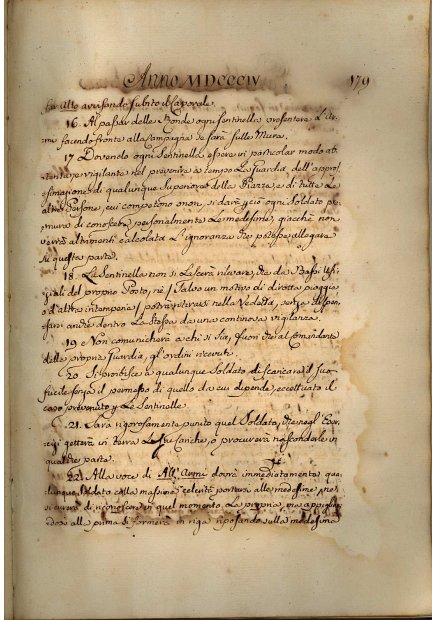 Anno MDCCCIV 179
fa Alto avvisando subito il Caporale.
16. Al passar delle Ronde ogni Sentinella presenterà L'Ar-
mi facendo fronte alla Campagna se sarà sulle Mura.
17 Dovendo ogni Sentinella essere in particolar modo at-
tenta, e vigilante nel prevenire a tempo La Guardia dell'appros-
simazione di qualunque Superiore della Piazza, e di tutte Le
altre Persone, cui competono onori, si darà perciò ogni Soldato pre-
mura di conoscere personalmente Le medesime, giacchè non
verrà altrimenti calcolata L'ignoranza che potesse allegare
su questa parte.
18. La Sentinella non si Lascerà rilevare, che da Bassi Uffi-
ziali del proprio Posto, nè Salvo un motivo di dirotta pioggia
o d'altra intemperia potrà ritirarsi nella Vedetta, senza dispen-
sarsi anche dentro La Stessa da una continova vigilanza.
19. Non comunicherà a chi si sia, fuori che al Comandante
della propria Guardia, gl'ordini ricevuti.
20. Si proibisce a qualunque Soldato di Scaricare il suo
fucile senza il permesso di quello da cui dipende, eccettuato il
caso prevenuto p Le Sentinelle.
21. Sarà rigorosamente punito quel Soldato, che negl'Eser-
cizi getterà in terra Le sue Cariche, o procurerà nasconderle in
qualche parte.
22. Alla voce di All'Armi dovrà immediatamente qua-
lunque Soldato colla massima celerità portarsi alle medesime, nè
si curerà di riconoscere in quel momento La propria, ma appiglian-
dosi alla prima si formerà in riga riposando sulla medesima